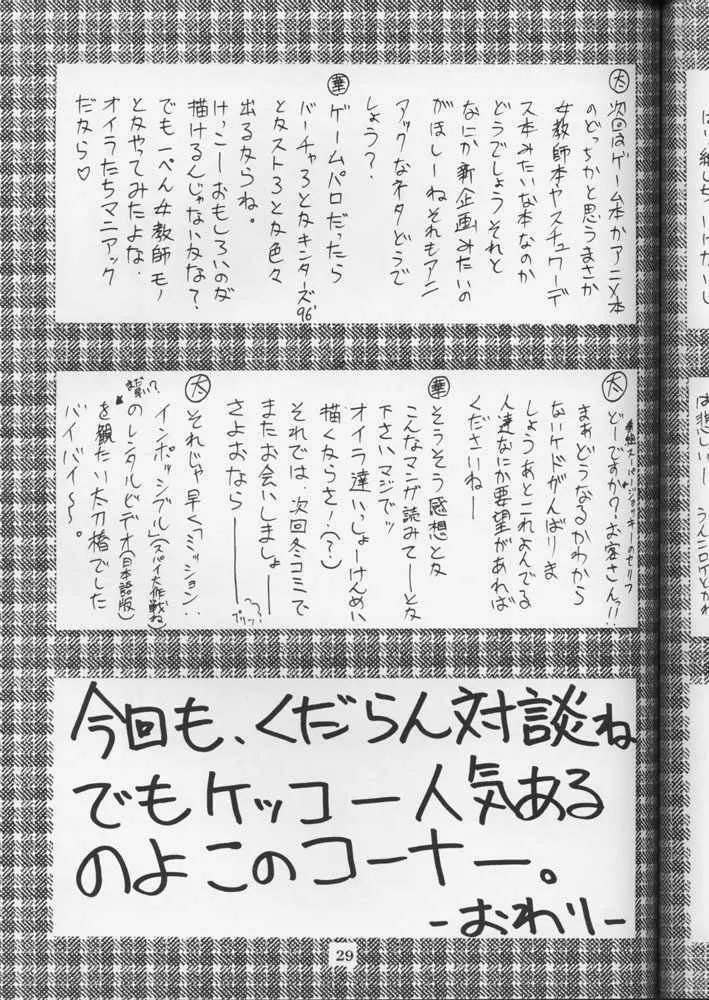 太 次回はゲーム本かアニメ本
のどっちかと思うまさか
女教師本やスチュワーデ
ス本みたいな本なのか
どうでしょうそれと
なにか新企画みたいの
がほしーねそれもアニ
アックなネタどうで
しょう?
華 ゲームパロだったら
バーチャろとかキンターズ96'
とかストろとか色々
出るからね。
けっこーおもしろいのが
描けるんじゃないかな?
でも一ぺん女教師モノ
とかやってみたよな。
オイラたちマニアック
だから♡
太 どーですか?お客さん!!
まぁどうなるかわから
ないケドがんばりま
しょうあとこれよんでる
人達なにか要望があれば
くださいねー
華 そうそう感想とか
こんなマンガ読みてーとか
下さいマジでッ
オイラ達いっしょーけんめい
描くからさ!(?)
それでは、次回冬コミで
またお会いしましょー
さよおならー ブリッ?
太 それじゃ早く「ミッション:
インポッシブル」(スパイ大作戦ね)
のレンタルビデオ(日本語版)
を観たい太刀椿でした
バイバイ〜。
今回も、くだらん対談ね
でもケッコー人気ある
のよこのコーナー。
-おわり-
29